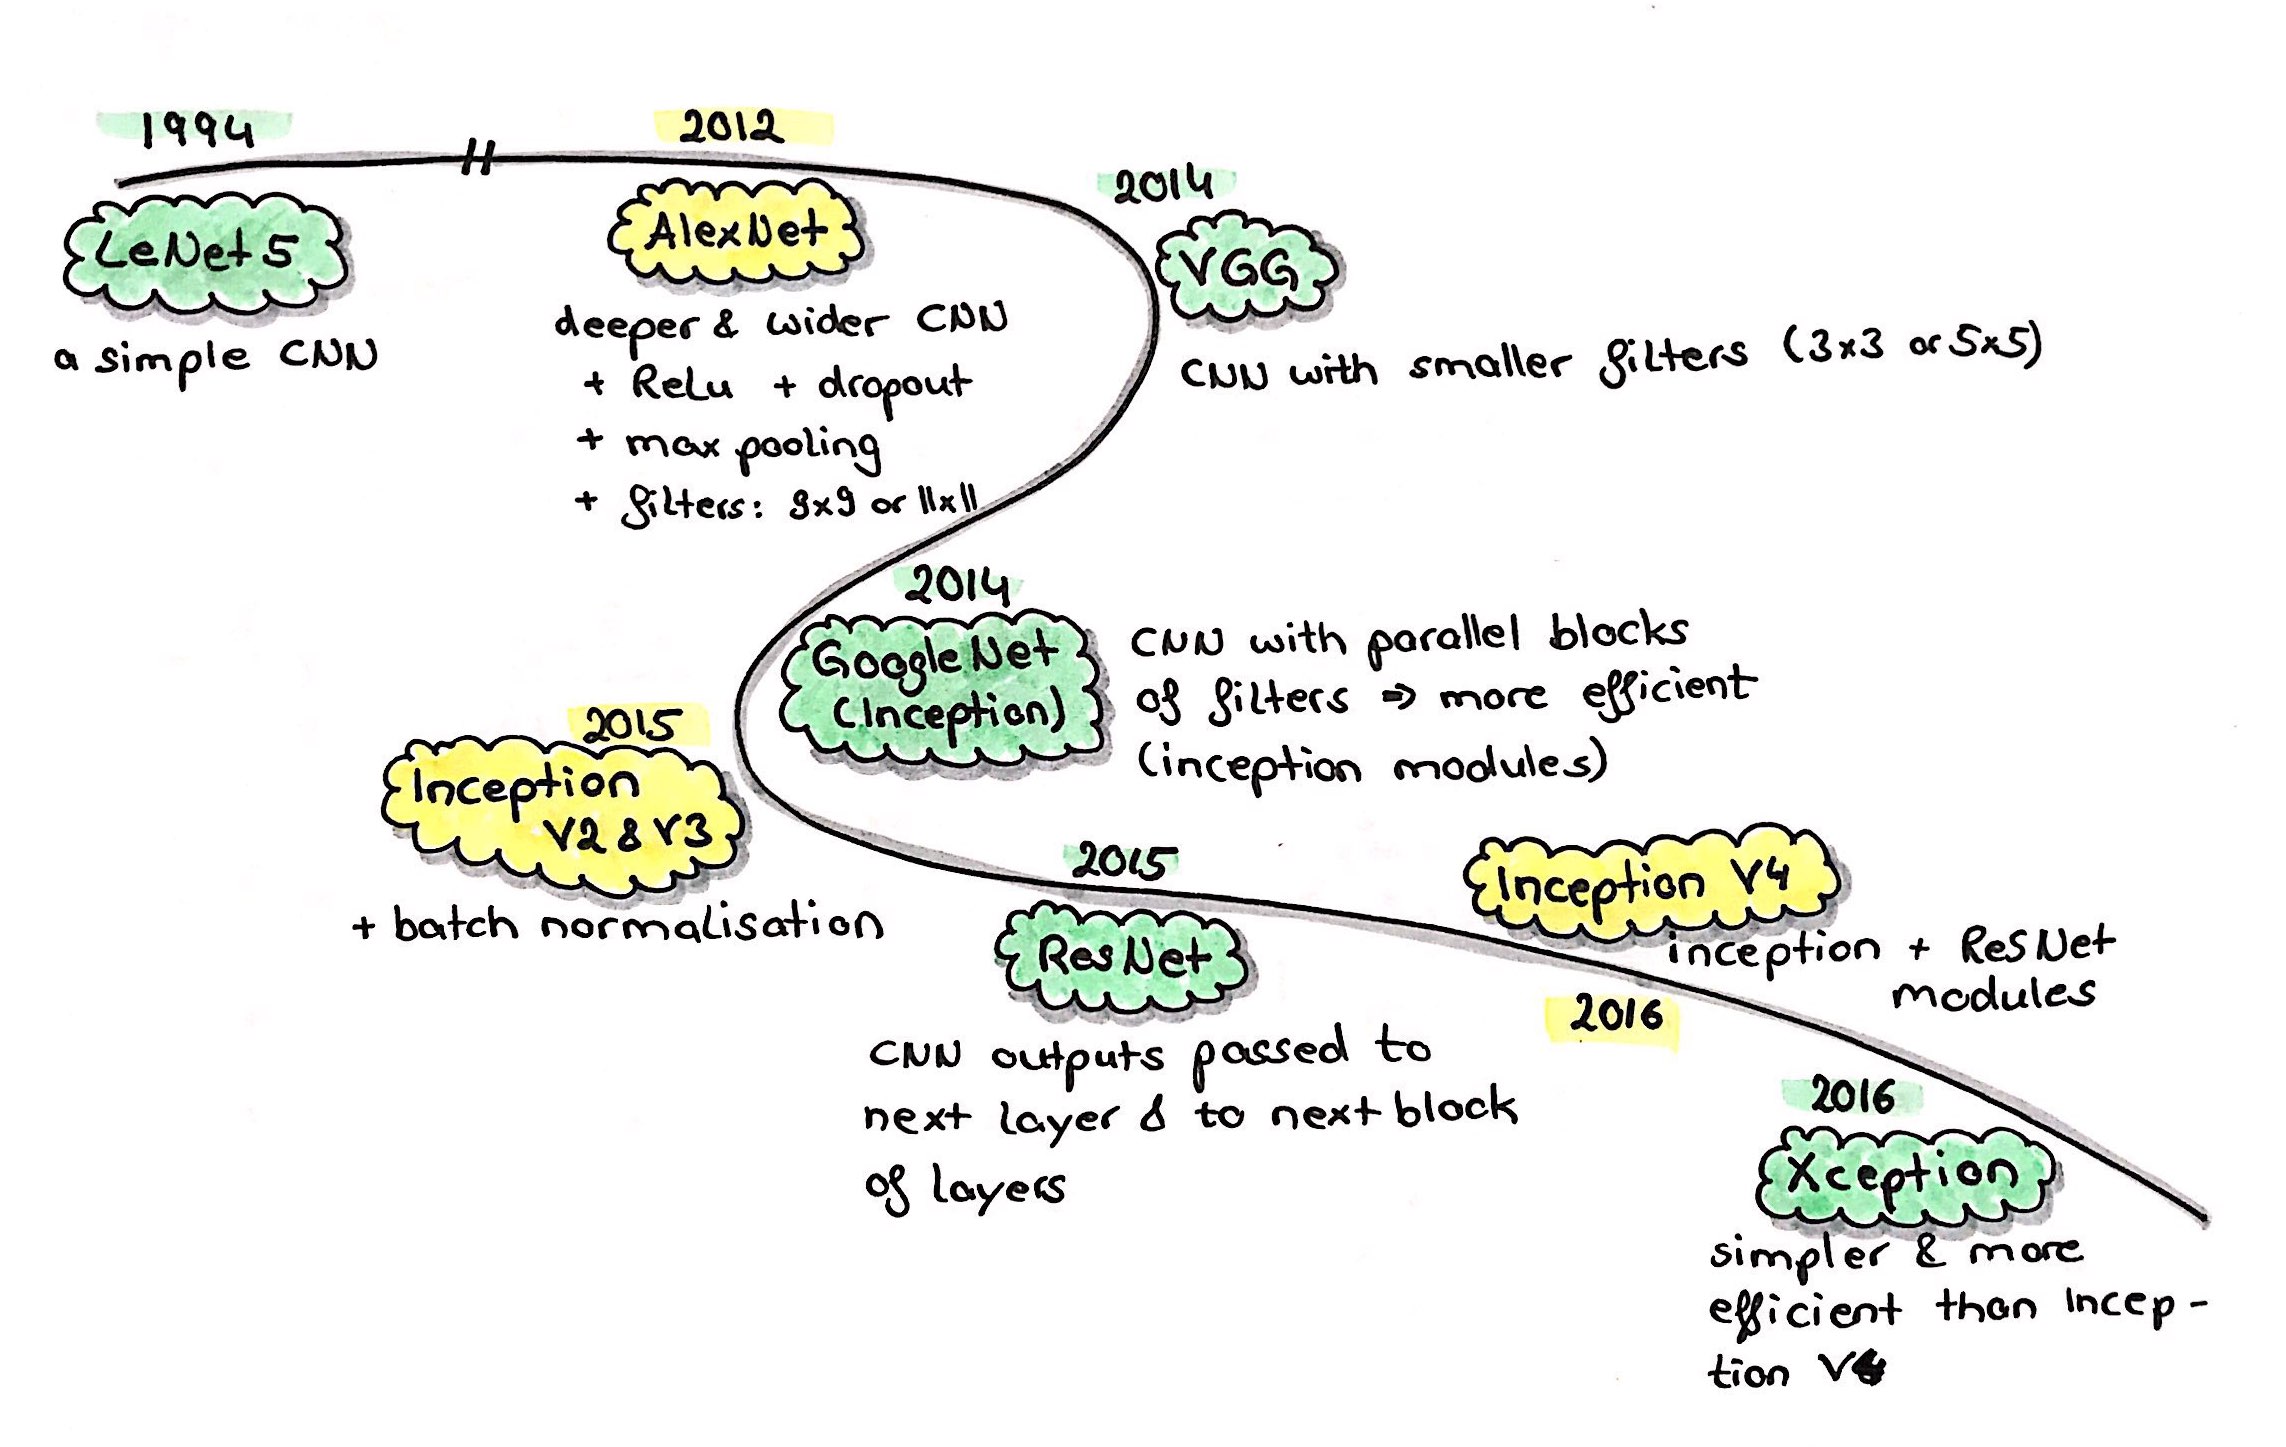 1994
LeNet5
a simple CNN
2012
AlexNet
deeper & wider CNN
+ ReLu + dropout
+ max pooling
+ filters: 9x9 or 11x11
2014
VGG
CNN with smaller filters (3x3 or 5x5)
2014
GoogleNet
(Inception)
CNN with parallel blocks
of filters ⇒ more efficient
(inception modules)
2015
Inception
V2 & V3
+ batch normalisation
2015
ResNet
CNN outputs passed to
next layer & to next block
of layers
Inception V4
inception + ResNet
modules
2016
2016
Xception
simpler & more
efficient than Incep-
tion V4